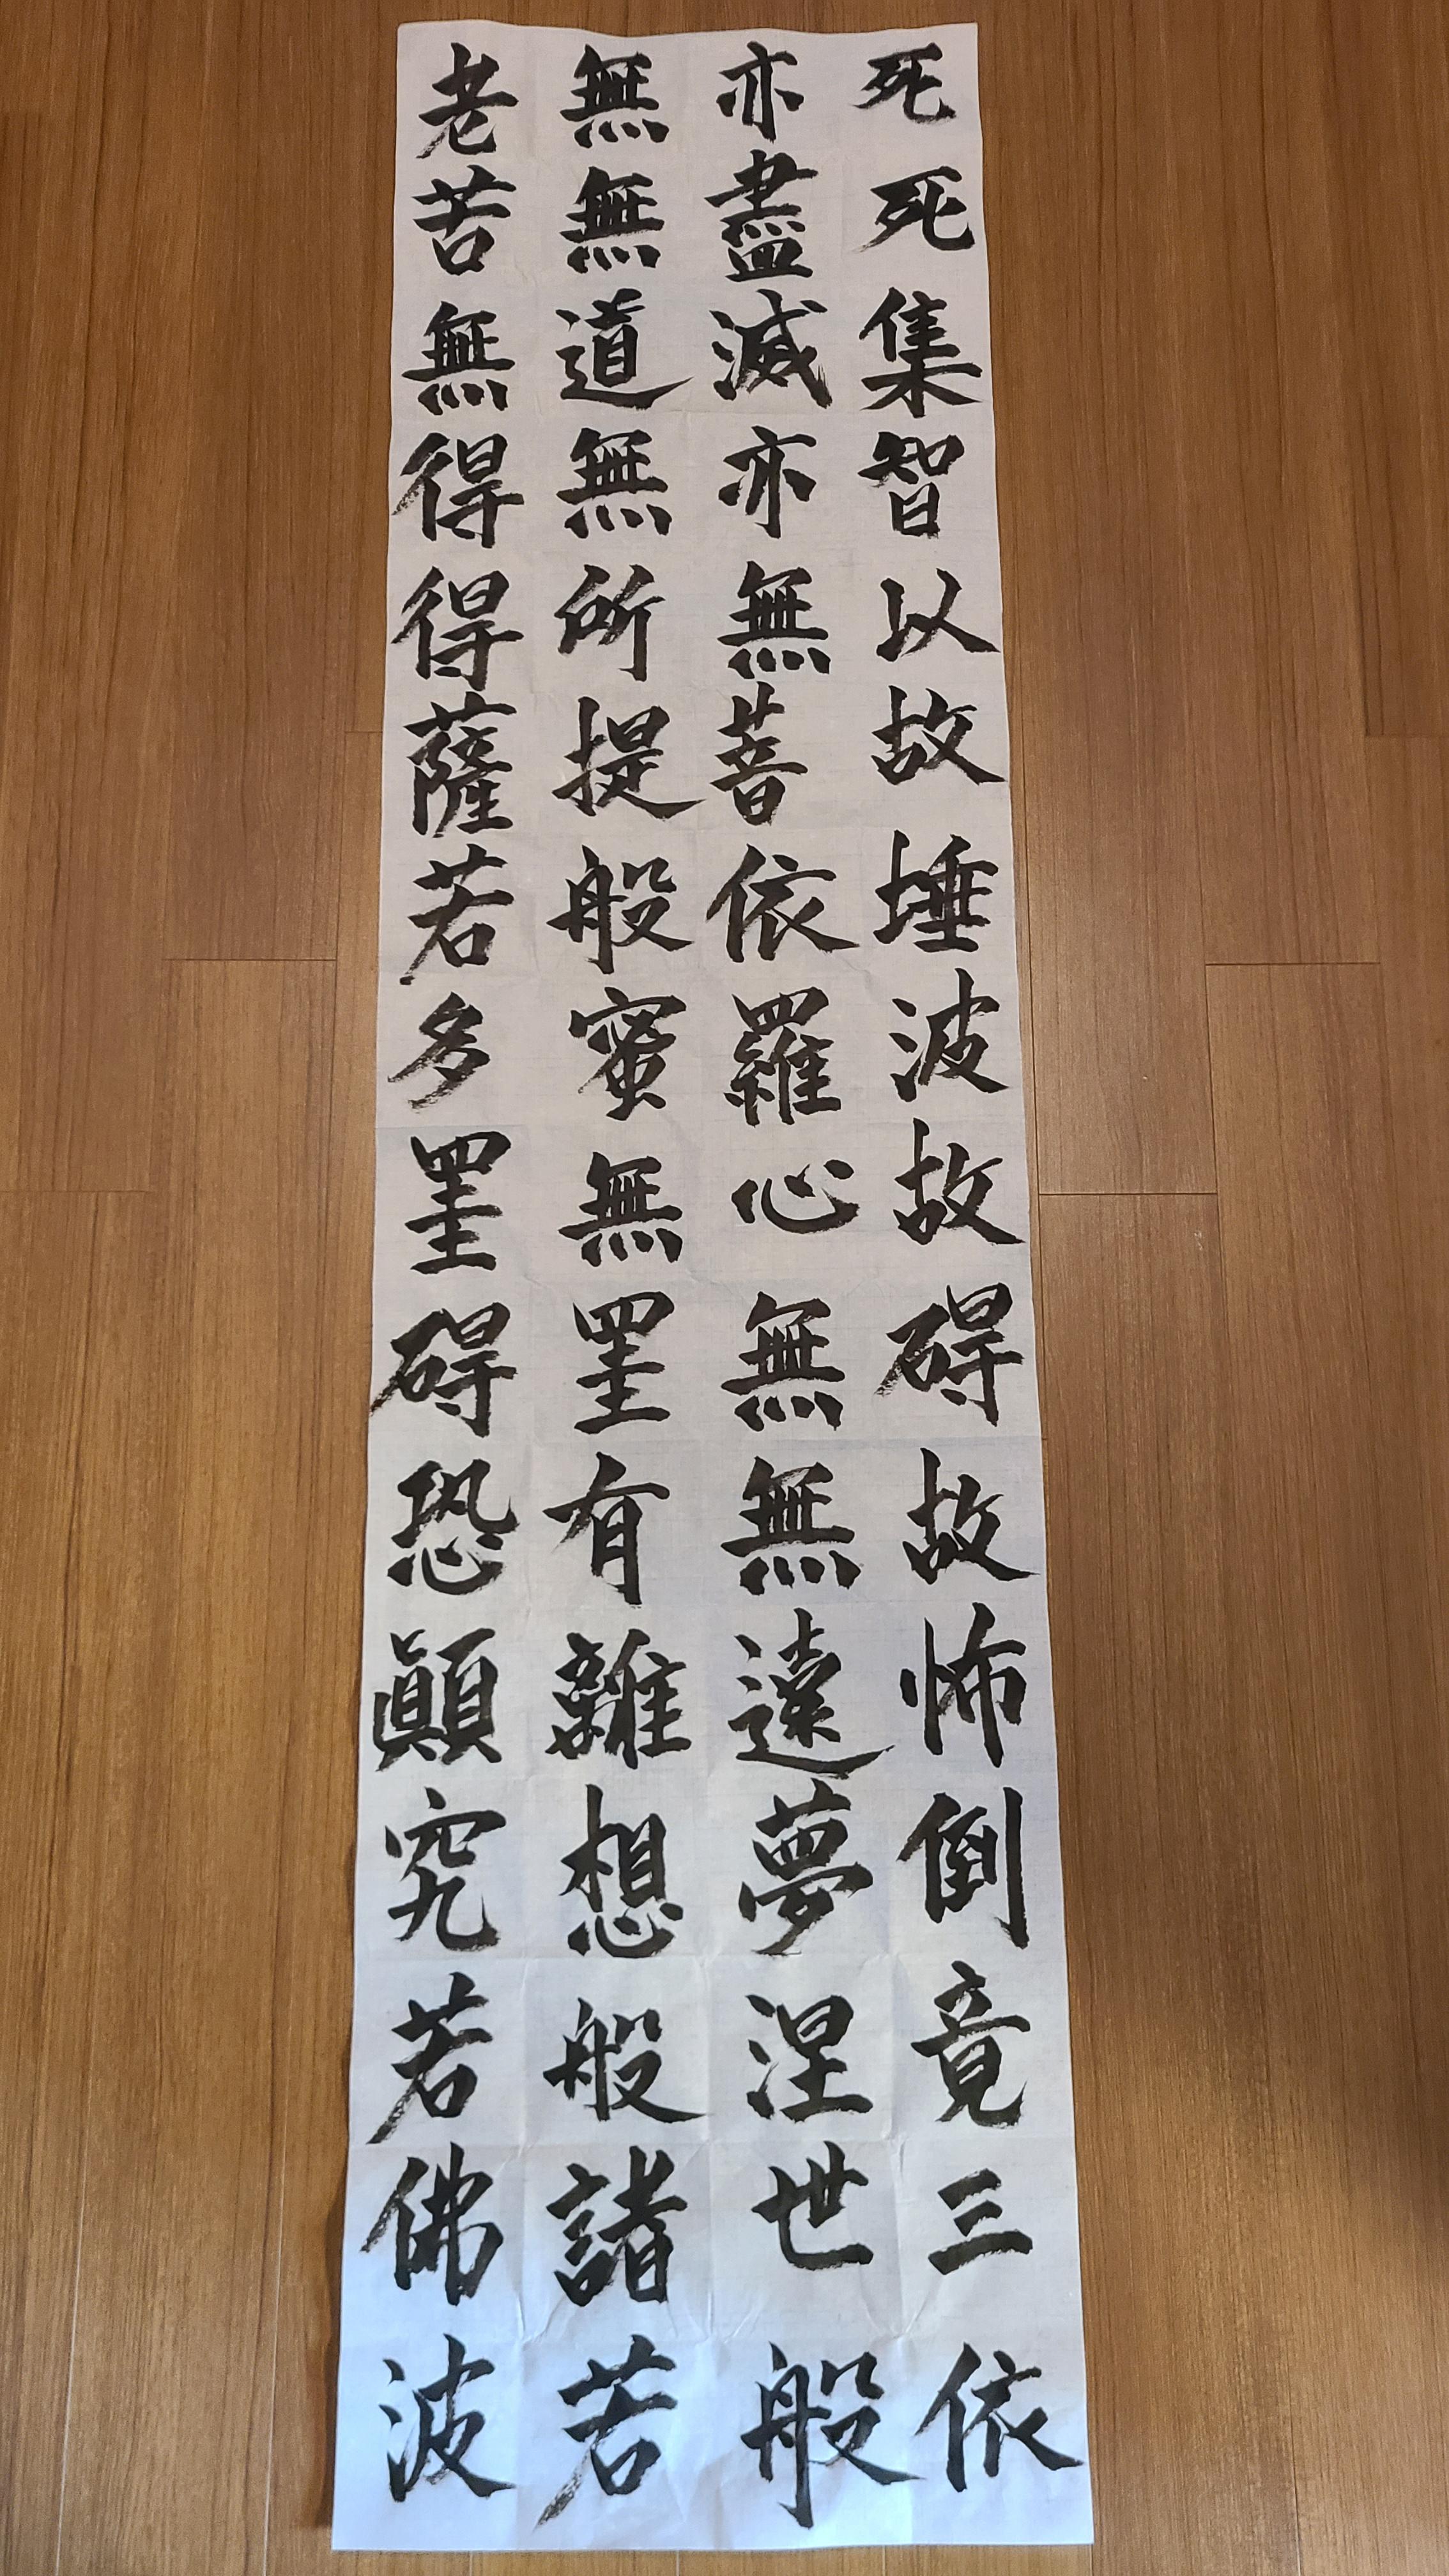 死亦無老
死盡無苦
集滅道無
智亦無得
以無所得
故菩提薩
埵依般若
波羅蜜多
故心無罣
碍無罣碍
故無有恐
怖遠離顚
倒夢想究
竟涅般若
三世諸佛
依般若波